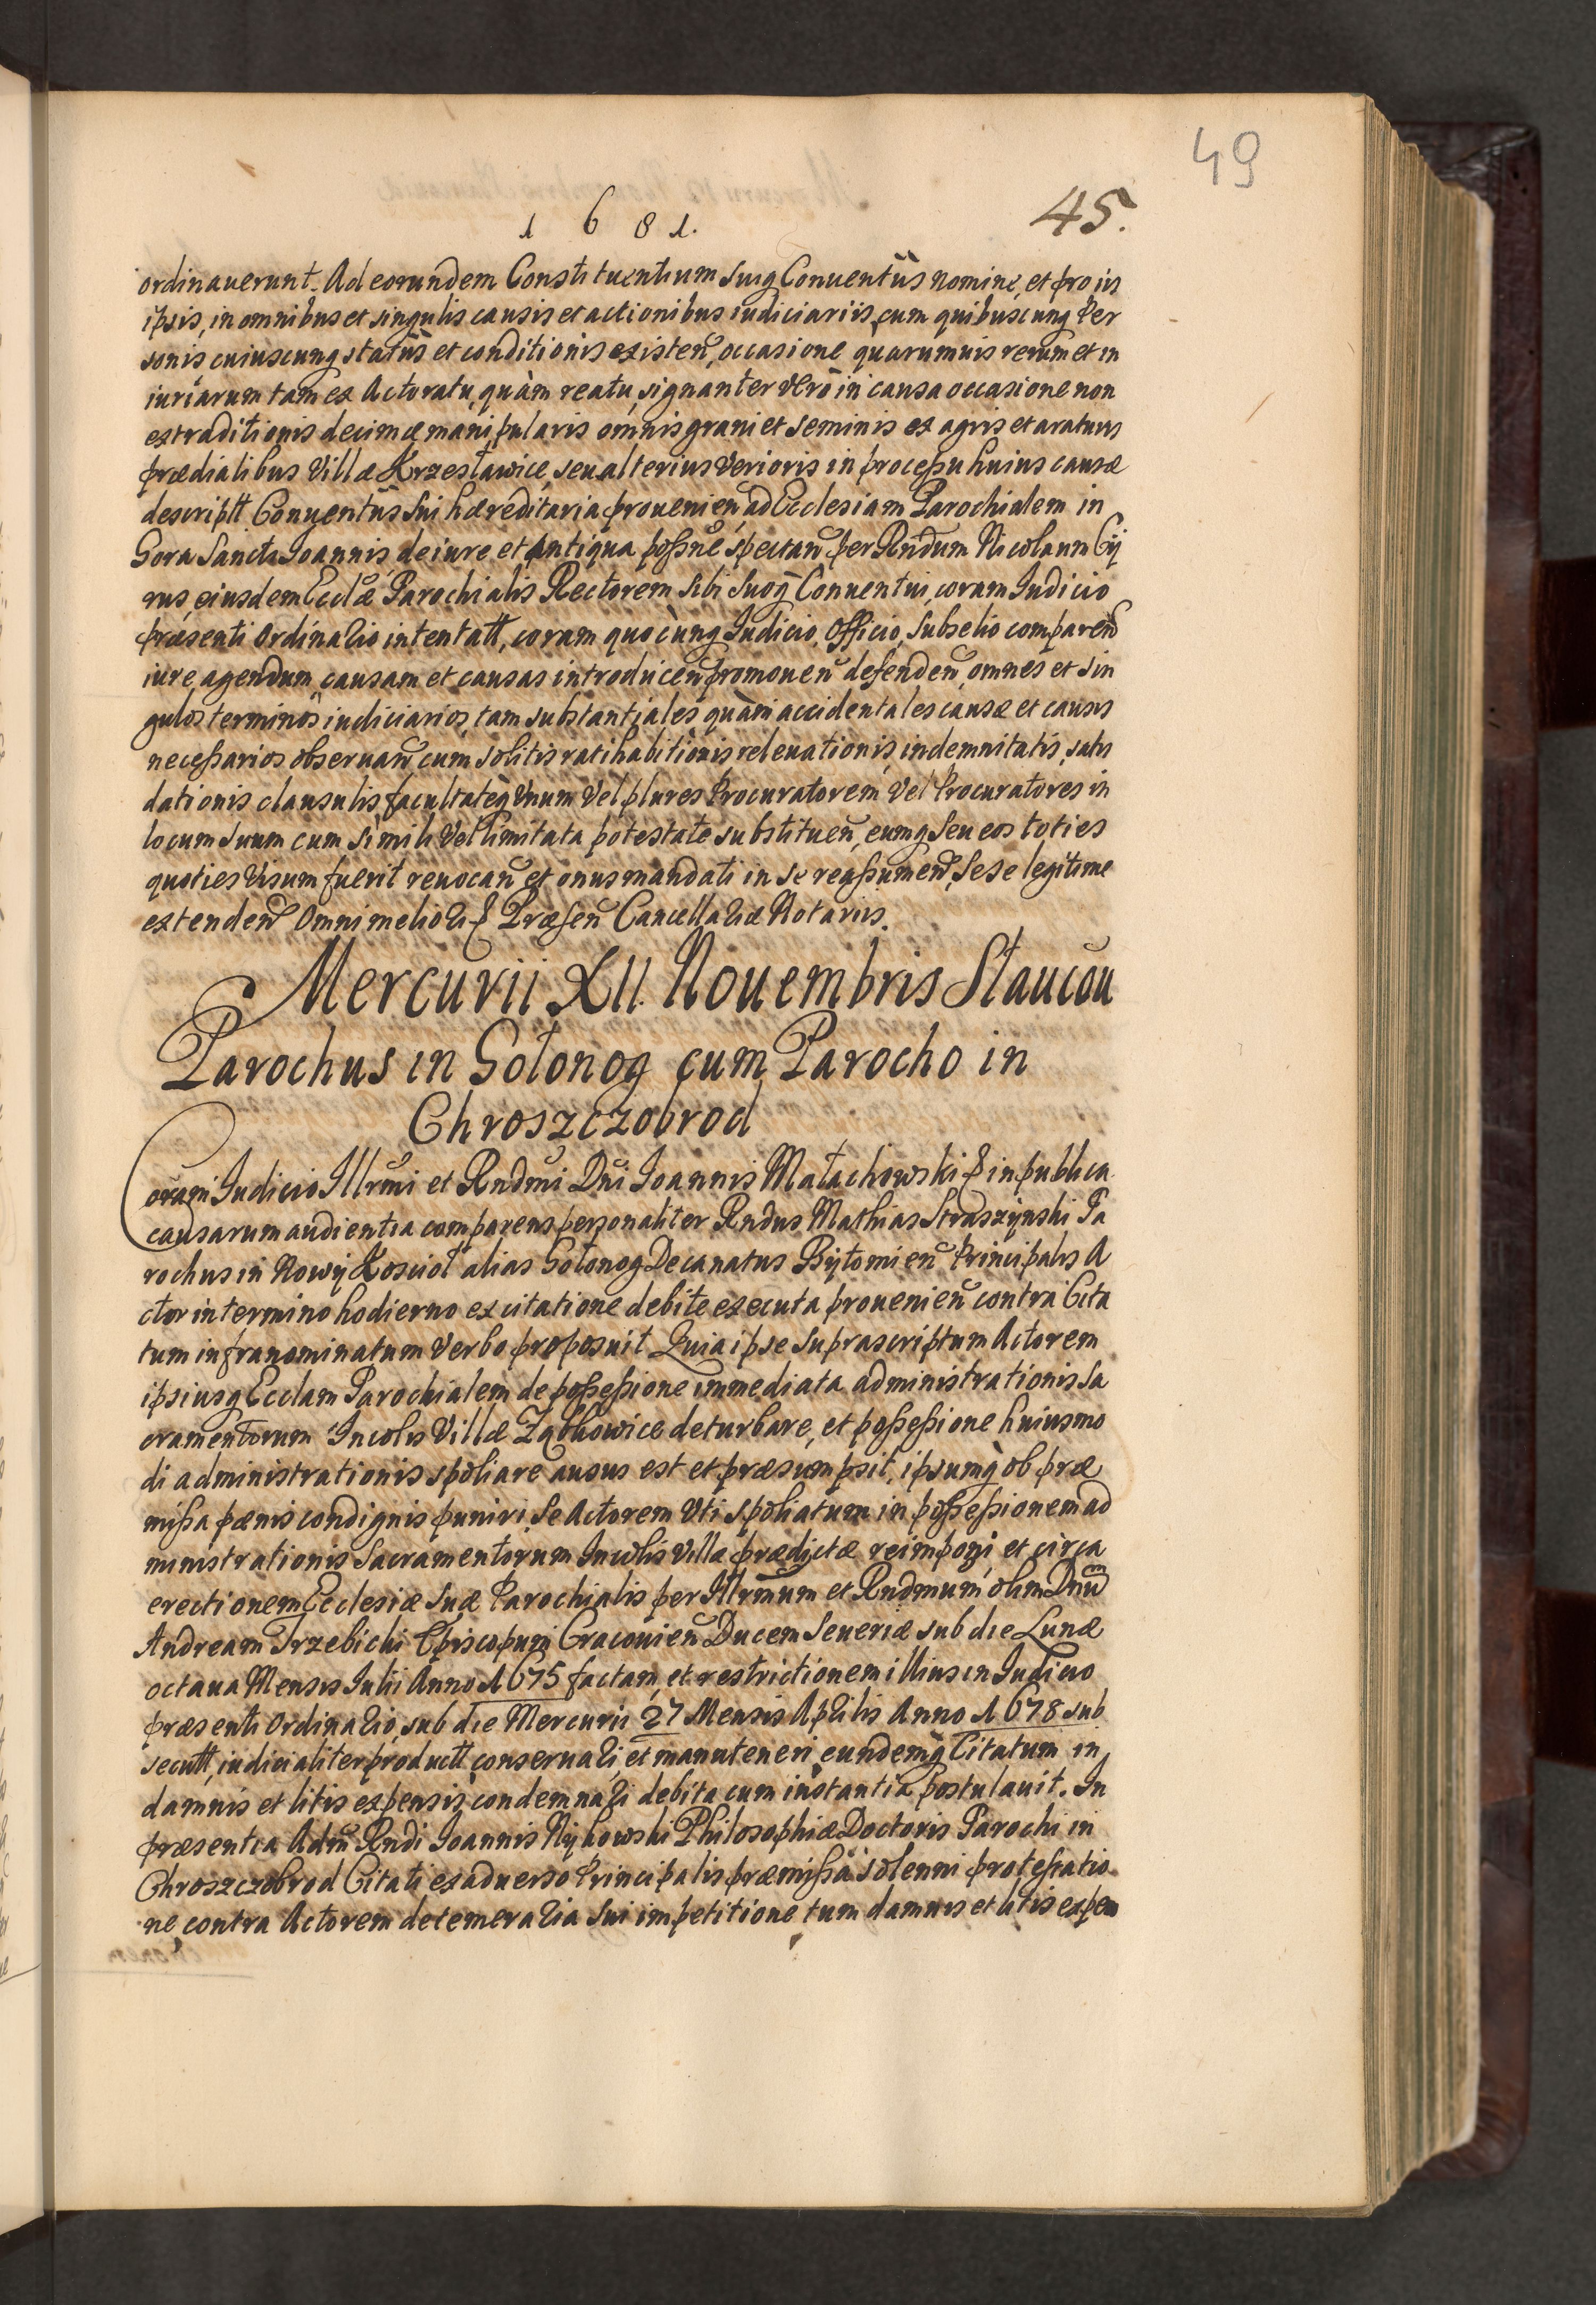 49
1681. 45.
ordinauerunt. Ad eorundem Constituentium suiq Conuentûs nomine, et pro iis
ipsis, in omnibus et singulis causis et actionibus iudiciariis, cum quibuscunq Per
sonis cuiuscunq statûs et conditionis existeñ, occasione quarumuis rerum et in
iuriarum tam ex Actoratu, quàm reatu, signanter verò in causa occasione non
extraditionis decimæ manipularis omnis grani et seminis ex agris et araturis
prædialibus Villæ Krzesławice, seu alterius verioris in processu huius causæ
descriptt Conuentûs sui hæreditaria prouenieñ, ad Ecclesiam Parochialem in
Gora Sancta Joannis, de iure et antiqua possnẽ spectañ, per Rndum Nicolaum Cÿ
rus, eiusdem Ecclæ Parochialis Rectorem sibi suoq̃ Conuentui, coram Judicio
præsenti Ordinario intentatt, coram quocunq Judicio, Officio, Subselio compareñ
iure agendum, causam et causas introduceñ promoueñ defendeñ, omnes et sin
gulos terminos iudiciarios, tam substantiales quàm accidentales causæ et causis
necessarios obseruañ, cum solitis ratihabitionis, releuationis, indemnitatis, satis
dationis clausulis, facultateq̃ Vnum Vel plures Procuratorem Vel Procuratores in
locum suum cum simili Vel limitata potestate substitueñ, eumq seu eos toties
quoties Visum fuerit reuocañ et onus mandati in se reassumeñ, sese legitime
extendeñ Omni meliori & Præseñ Cancellariæ Notariis.
Mercurii XII. Nouembris Slaucou
Parochus in Gołonog cum Parocho in
Chroszczobrod
Coram Judicio Illrmi et Rndmi Dni Joannis Małachowski & in publica
causarum audientia comparens personaliter Rndus Mathias Straszÿnski Pa
rochus in Nowÿ Koscioł alias Gołonog Decanatus Bÿtomieñ Principalis A
ctor in termino hodierno ex citatione debite executa prouenieñ contra Cita
tum infranominatum Verbo proposuit Quia ipse suprascriptum Actorem
ipsiusq Ecclam Parochialem de possessione immediata administrationis Sa
cramentorum Incolis Villæ Ząbkowice deturbare, et possessione huiusmo
di administrationis spoliare ausus est et præsumpsit, ipsumq̀ ob præ
missa pænis condignis puniri, Se Actorem Vti spoliatum in possessionem ad
ministrationis Sacramentorum Incolis Villæ prædictæ reimponi et circa
erectionem Ecclesiæ suæ Parochialis per Illrmum et Rndmum olim Dnum
Andream Trzebicki Episcopum Cracouieñ Ducem Seueriæ sub die Lunæ
octaua Mensis Julii Anno 1675 factam, et restrictionem illius in Judicio
præsenti Ordinario, sub die Mercurii 27 Mensis Aprilis Anno 1678 sub
secutt, iudicialiter productt conseruari, et manuteneri, eundemq̀ Citatum in
damnis et litis expensis condemnari debita cum instantia postulauit. In
præsentia Admm Rndi Joannis Nÿkowski Philosophiæ Doctoris Parochi in
Chroszczobrod Citati ex aduerso Principalis præmissa solenni protestatio
ne, contra Actorem de temeraria sui impetitione, tum damnis et litis expen